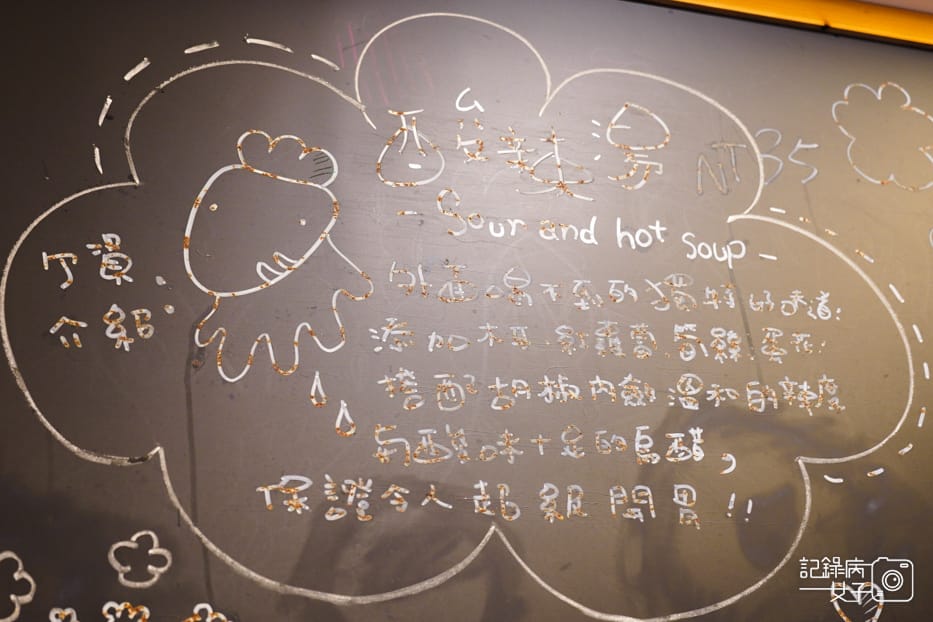 酸辣湯
NT35
- Sour and hot Soup -
丁滿
介紹
外面喝不到的獨特的味道!
添加木耳 紅蘿蔔 筍絲 蛋花
搭配胡椒內斂溫和的辣度
與酸味十足的烏醋,
保證令人超級開胃!!
記錄病
女子